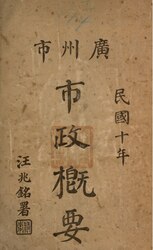 廣州市
市政概要
民國十年
汪兆銘署